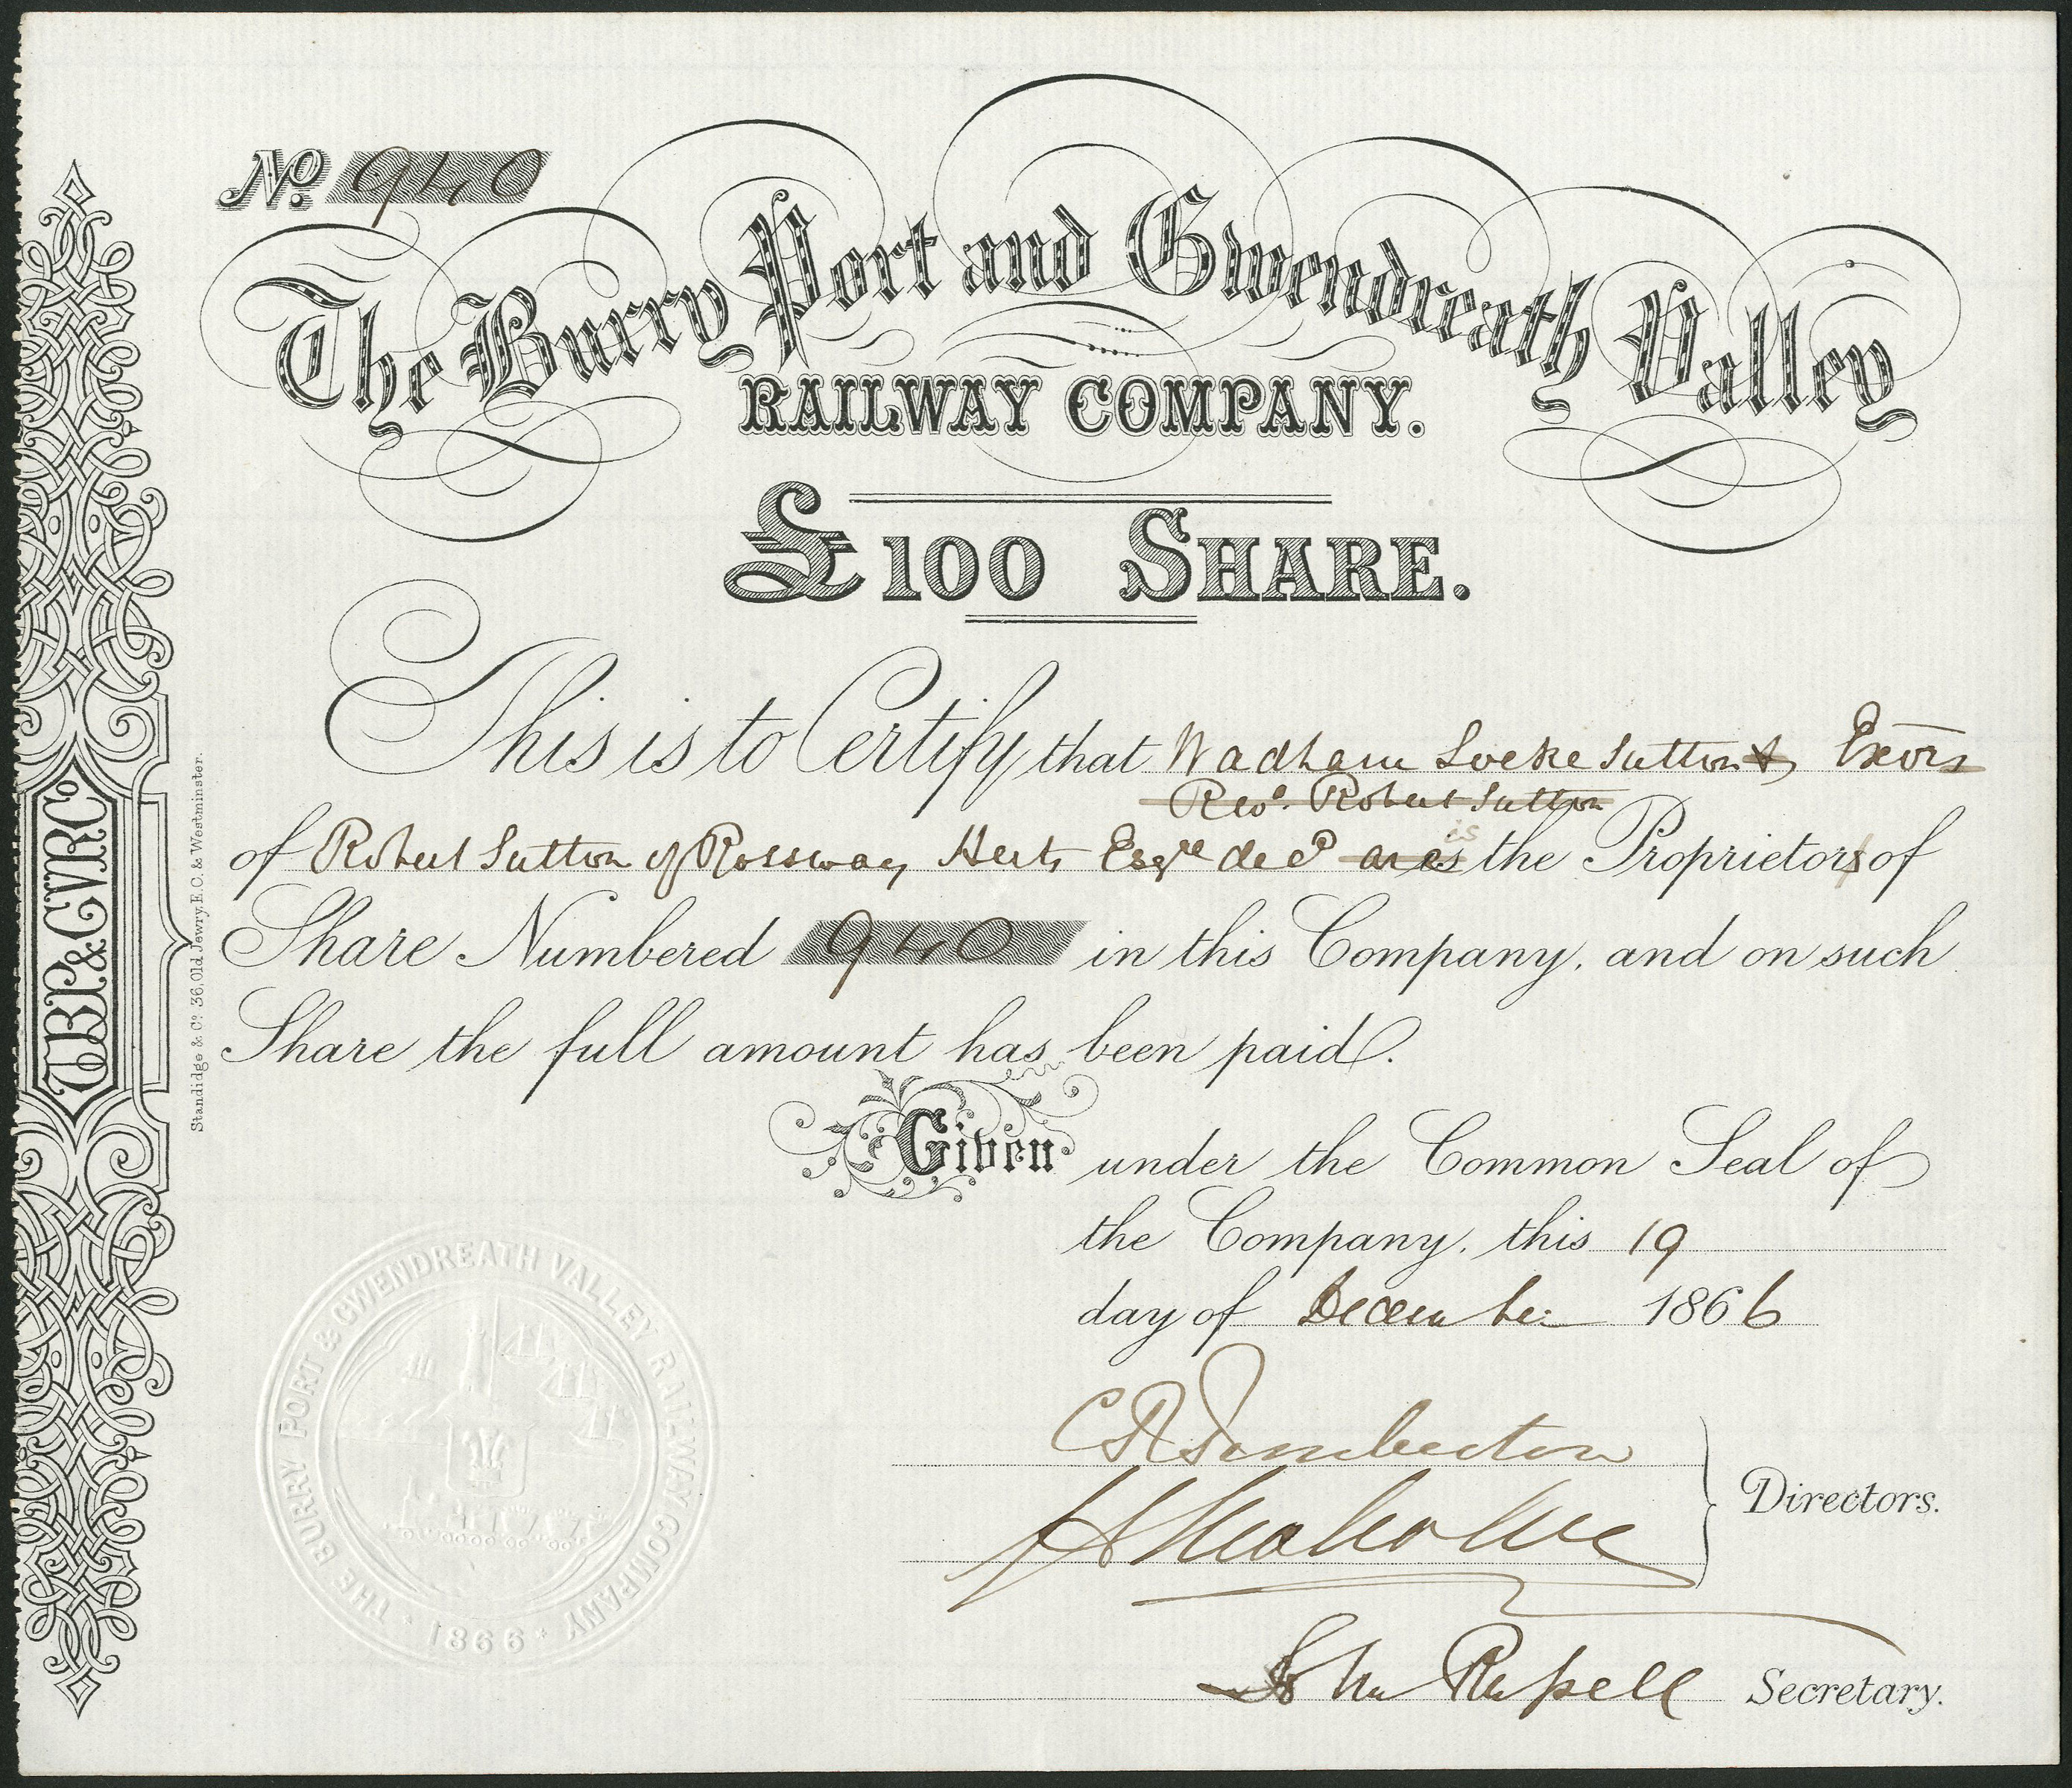 No. 940
The Burry Port and Gwendreath Valley
RAILWAY COMPANY.
£100 SHARE.
This is to Certify that Wadham Locke Sutton & Exors
Revd. Robert Sutton
is
of Robert Sutton of Rossway Herts Esqre decd are the Proprietors of
Share Numbered 940 in this Company, and on such
Share the full amount has been paid.
Given under the Common Seal of
the Company, this 19
day of December 1866
Directors.
John Russell Secretary.
TBP&GVRCo
Standidge & Co. 36, Old Jewry, E.C. & Westminster.
THE BURRY PORT & GWENDREATH VALLEY RAILWAY COMPANY
* 1866 *